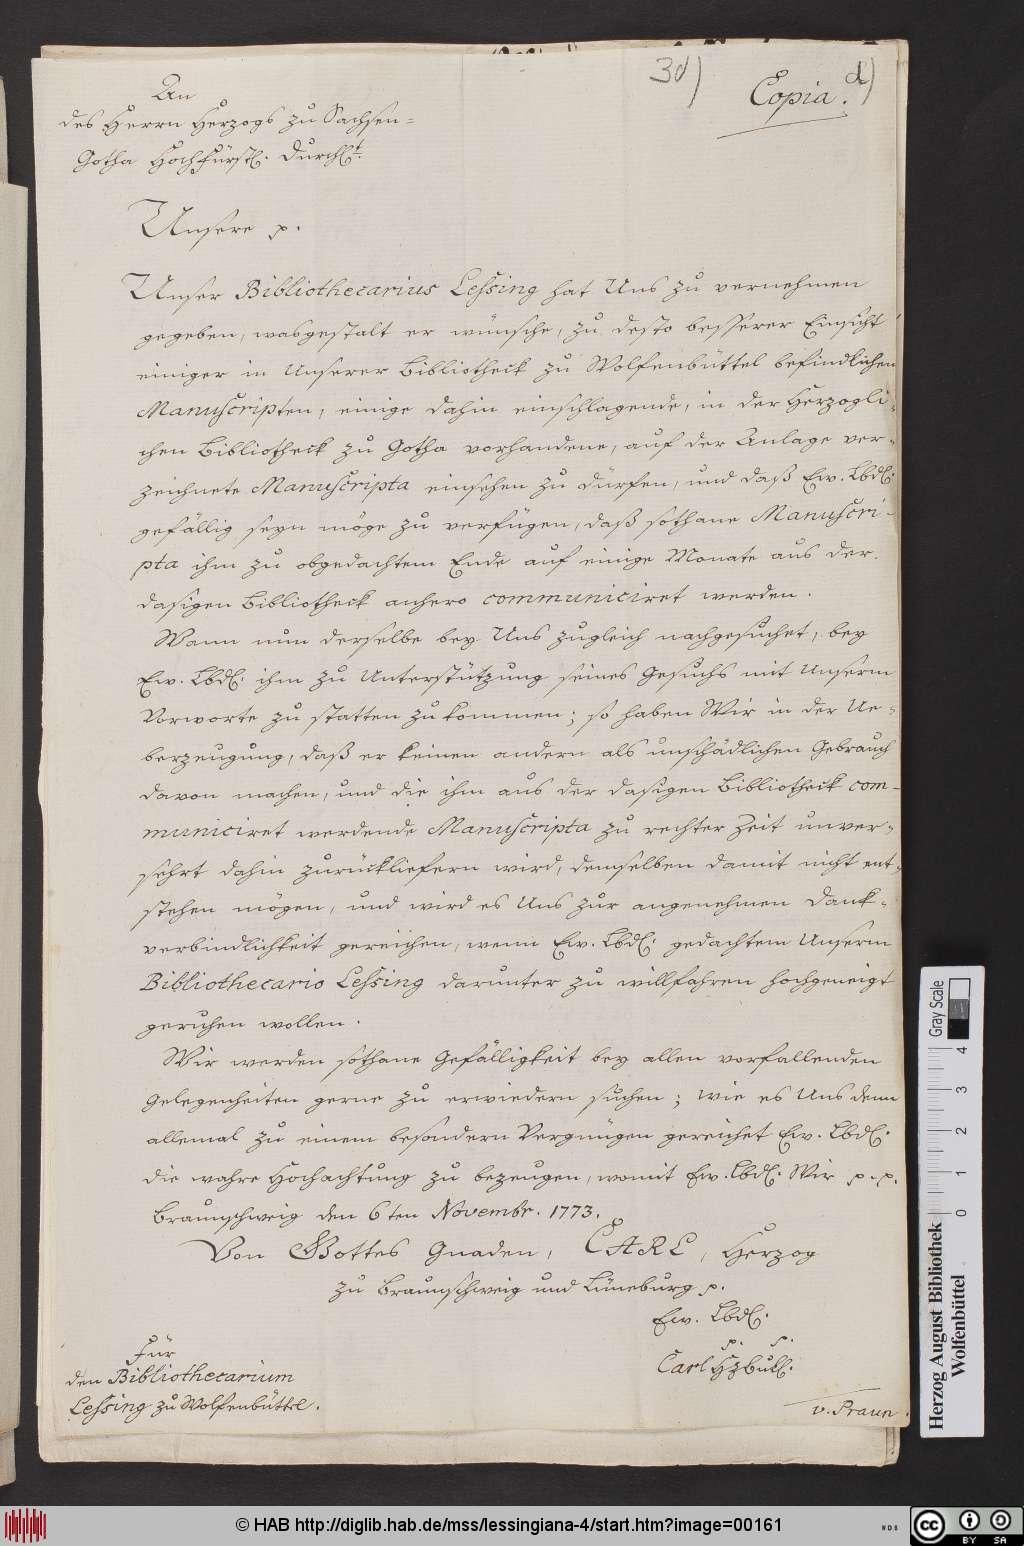 30)
d)
Copia.
An
des Herrn Herzogs zu Sachsen-
Gotha Hochfürstl. Durchlt.
Unsere p.
Unser Bibliothecarius Lessing hat Uns zu vernehmen
gegeben, wasgestalt er wünsche, zu desto besserer Einsicht
einiger in Unserer Bibliotheck zu Wolfenbüttel befindlichen
Manuscripten, einige dahin einschlagende, in der Herzogli-
chen Bibliotheck zu Gotha vorhandene, auf der Anlage ver-
zeichnete Manuscripta einsehen zu dürfen, und daß Ew. Lbdl.
gefällig seyn möge zu verfügen, daß sothane Manuscri-
pta ihm zu obgedachtem Ende auf einige Monate aus der
dasigen Bibliotheck anhero communiciret werden.
Wann nun derselbe bey Uns zugleich nachgesuchet, bey
Ew. Lbdl. ihm zu Unterstützung seines Gesuchs mit Unserm
Vorworte zu statten zu kommen; so haben Wir in der Ue-
berzeugung, daß er keinen andern als unschädlichen Gebrauch
davon machen, und die ihm aus der dasigen Bibliotheck com-
municiret werdende Manuscripta zu rechter Zeit unver-
sehrt dahin zurückliefern wird, demselben damit nicht ent-
stehen mögen, und wird es Uns zur angenehmen Dank-
verbindlichkeit gereichen, wenn Ew. Lbdl. gedachtem Unserm
Bibliothecario Lessing darunter zu willfahren hochgeneigt
geruhen wollen.
Wir werden sothane Gefälligkeit bey allen vorfallenden
Gelegenheiten gerne zu erwiedern suchen; wie es Uns denn
allemal zu einem besondern Vergnügen gereichet Ew. Lbdl.
die wahre Hochachtung zu bezeugen, womit Ew. Lbdl. Wir p. p.
Braunschweig den 6ten Novembr. 1773.
Von Gottes Gnaden, CARL, Herzog
zu Braunschweig und Lüneburg p.
Ew. Lbdl.
p. p.
Carl HzBuL.
v. Praun.
Für
den Bibliothecarium
Lessing zu Wolfenbüttel.
Gray Scale
0 1 2 3 4
Herzog August Bibliothek
Wolfenbüttel
© HAB http://diglib.hab.de/mss/lessingiana-4/start.htm?image=00161
cc BY SA